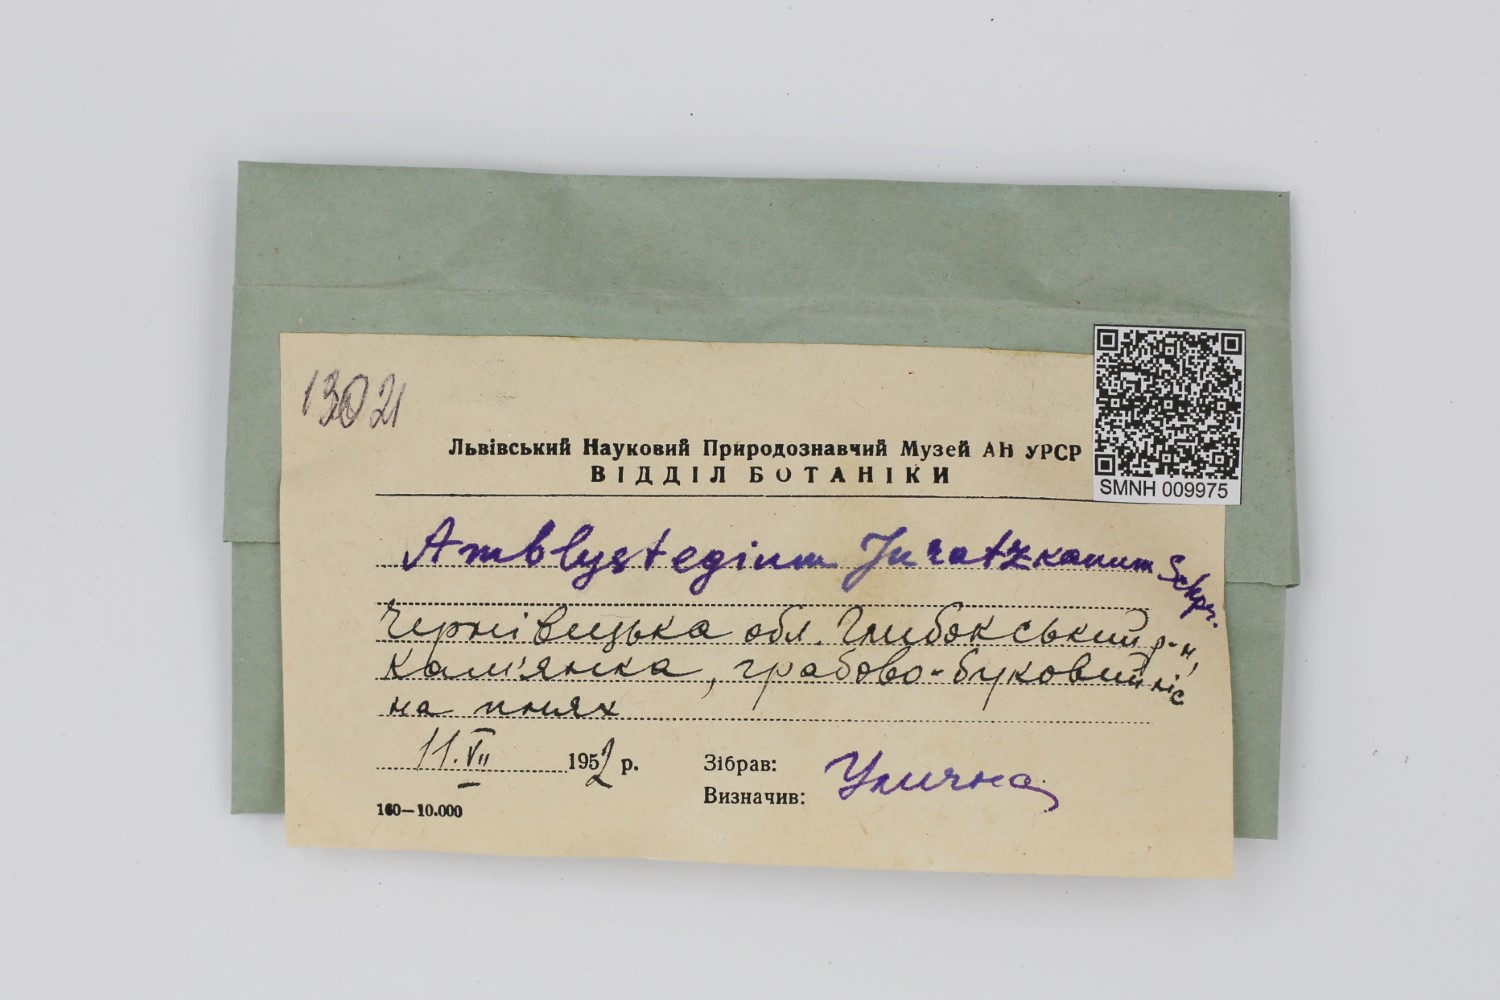 13021
Львівський Науковий Природознавчий Музей АН УРСР
ВІДДІЛ БОТАНІКИ
SMNH 009975
Amblystegium Juratzkanum Schpr.
Чернівецька обл. Глибокський р-н,
Кам'янка, грабово-буковий ліс
на пнях
11.VII 1952 р.
Зібрав: Улична
Визначив:
160—10.000